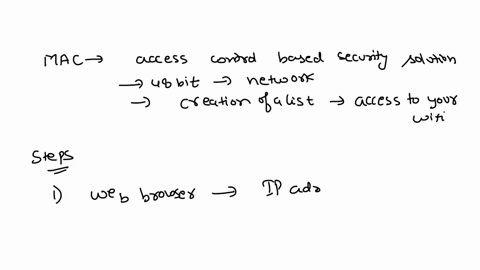 MAC → access control based security solution
→ 48 bit → network
→ creation of a list → access to your
wifi
Steps
1) web browser → IP adr